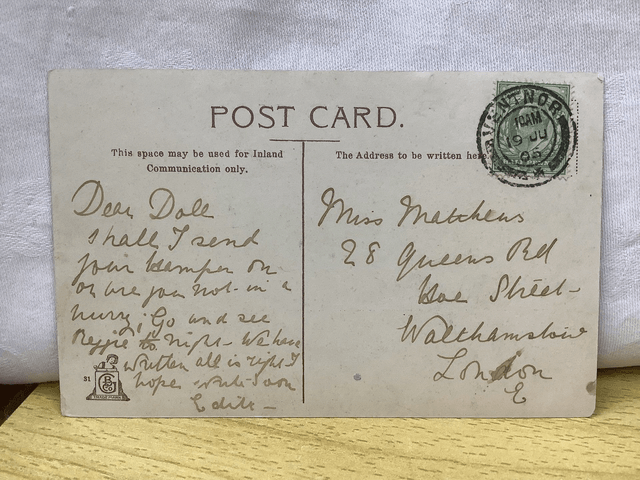 POST CARD.
This space may be used for Inland
Communication only.
The Address to be written here.
VENTNOR
10 AM
19 JU
05
Dear Doll
shall I send
your hamper on
or are you not in a
hurry. Go and see
Reggie to night - We have
written all is right I
hope write soon
Edith -
Miss Matthews
28 Queens Rd
Hoe Street -
Walthamstow
London
E
31